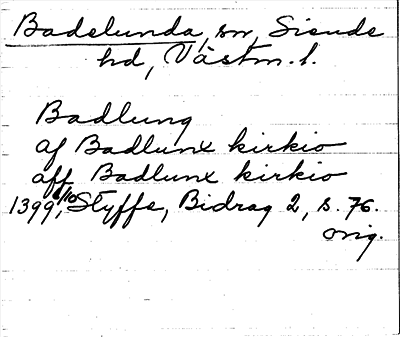 Badelunda, sn, Siende
hd, Västm. l.
Badlung
af Badlunx kirkio
aff Badlunx kirkio
1399 6/10, Styffe, Bidrag 2, s. 76.
orig.